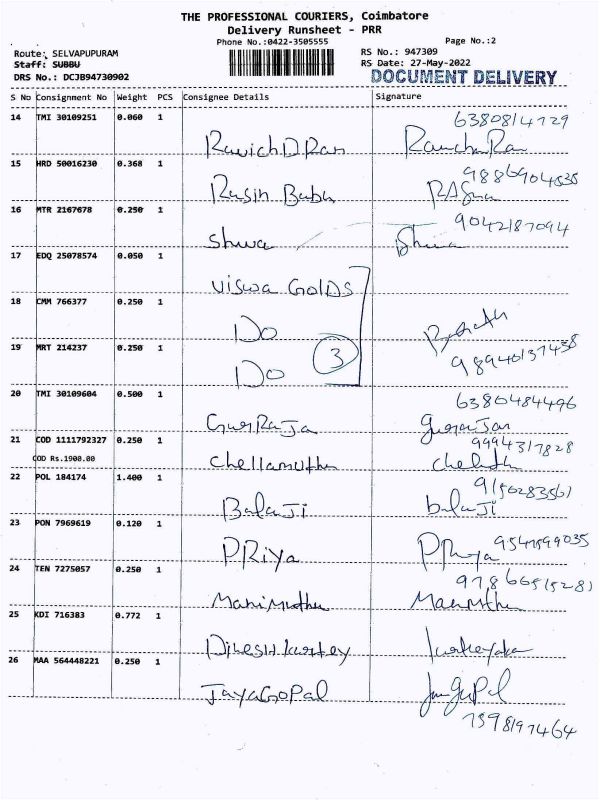 THE PROFESSIONAL COURIERS, Coimbatore
Delivery Runsheet - PRR
Phone No.:0422-3505555 Page No.:2
Route: SELVAPUPURAM RS No.: 947309
Staff: SUBBU RS Date: 27-May-2022
DRS No.: DCJB94730902 DOCUMENT DELIVERY
S No Consignment No Weight PCS Consignee Details Signature
14 TMI 30109251 0.060 1 6380814729
RavichDRan
15 HRD 50016230 0.368 1 9886904535
Rasin Babu
16 MTR 2167678 0.250 1 9042187094
Shiva Shiva
17 EDQ 25078574 0.050 1
Viswa GOlDS
18 CMM 766377 0.250 1
Do
19 MRT 214237 0.250 1 3 98940137438
Do
20 TMI 30109604 0.500 1 6380484496
GuruRaja
21 COD 1111792327 0.250 1 9994317828
COD Rs.1900.00 Chellamuthu
22 POL 184174 1.400 1 9150283561
BalaJi balaJi
23 PON 7969619 0.120 1
PRiya PRiya 9547599035
24 TEN 7275057 0.250 1 9786651528
Manimuthu
25 KDI 716383 0.772 1
DineshKartey
26 MAA 564448221 0.250 1
JayaGOPal
7598197464